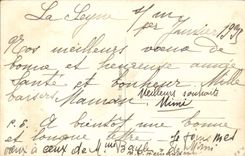 La Seyne s/m
1er Janvier 1939
Nos meilleurs voeux de
bonne et heureuse année
Santé et bonheur Mille
baisers Maman
Meilleurs souhaits
Mimi
P.S. A bientôt une bonne
et longue lettre
voeux à ceux de Mme